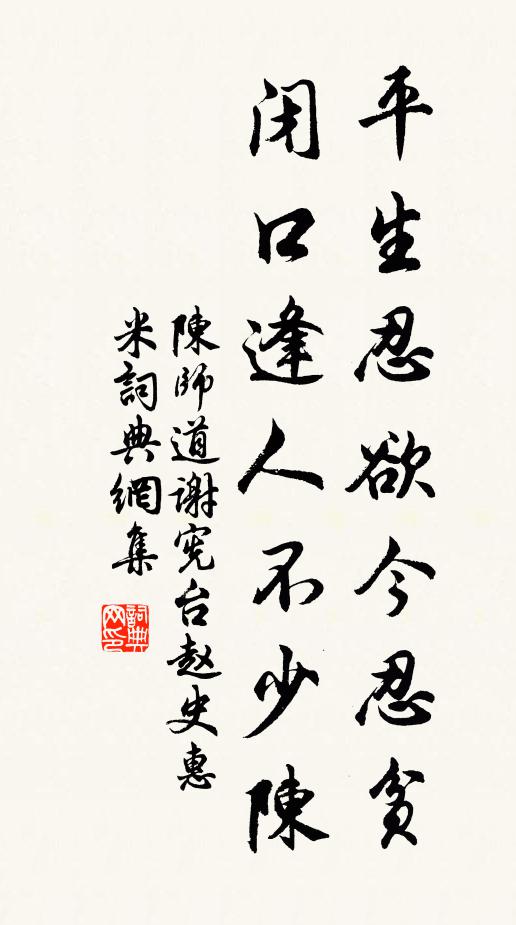 平生忍欲今忍貧
閉口逢人不少陳
陳師道謝宪台赵史惠
米詞典網集
詞典网印